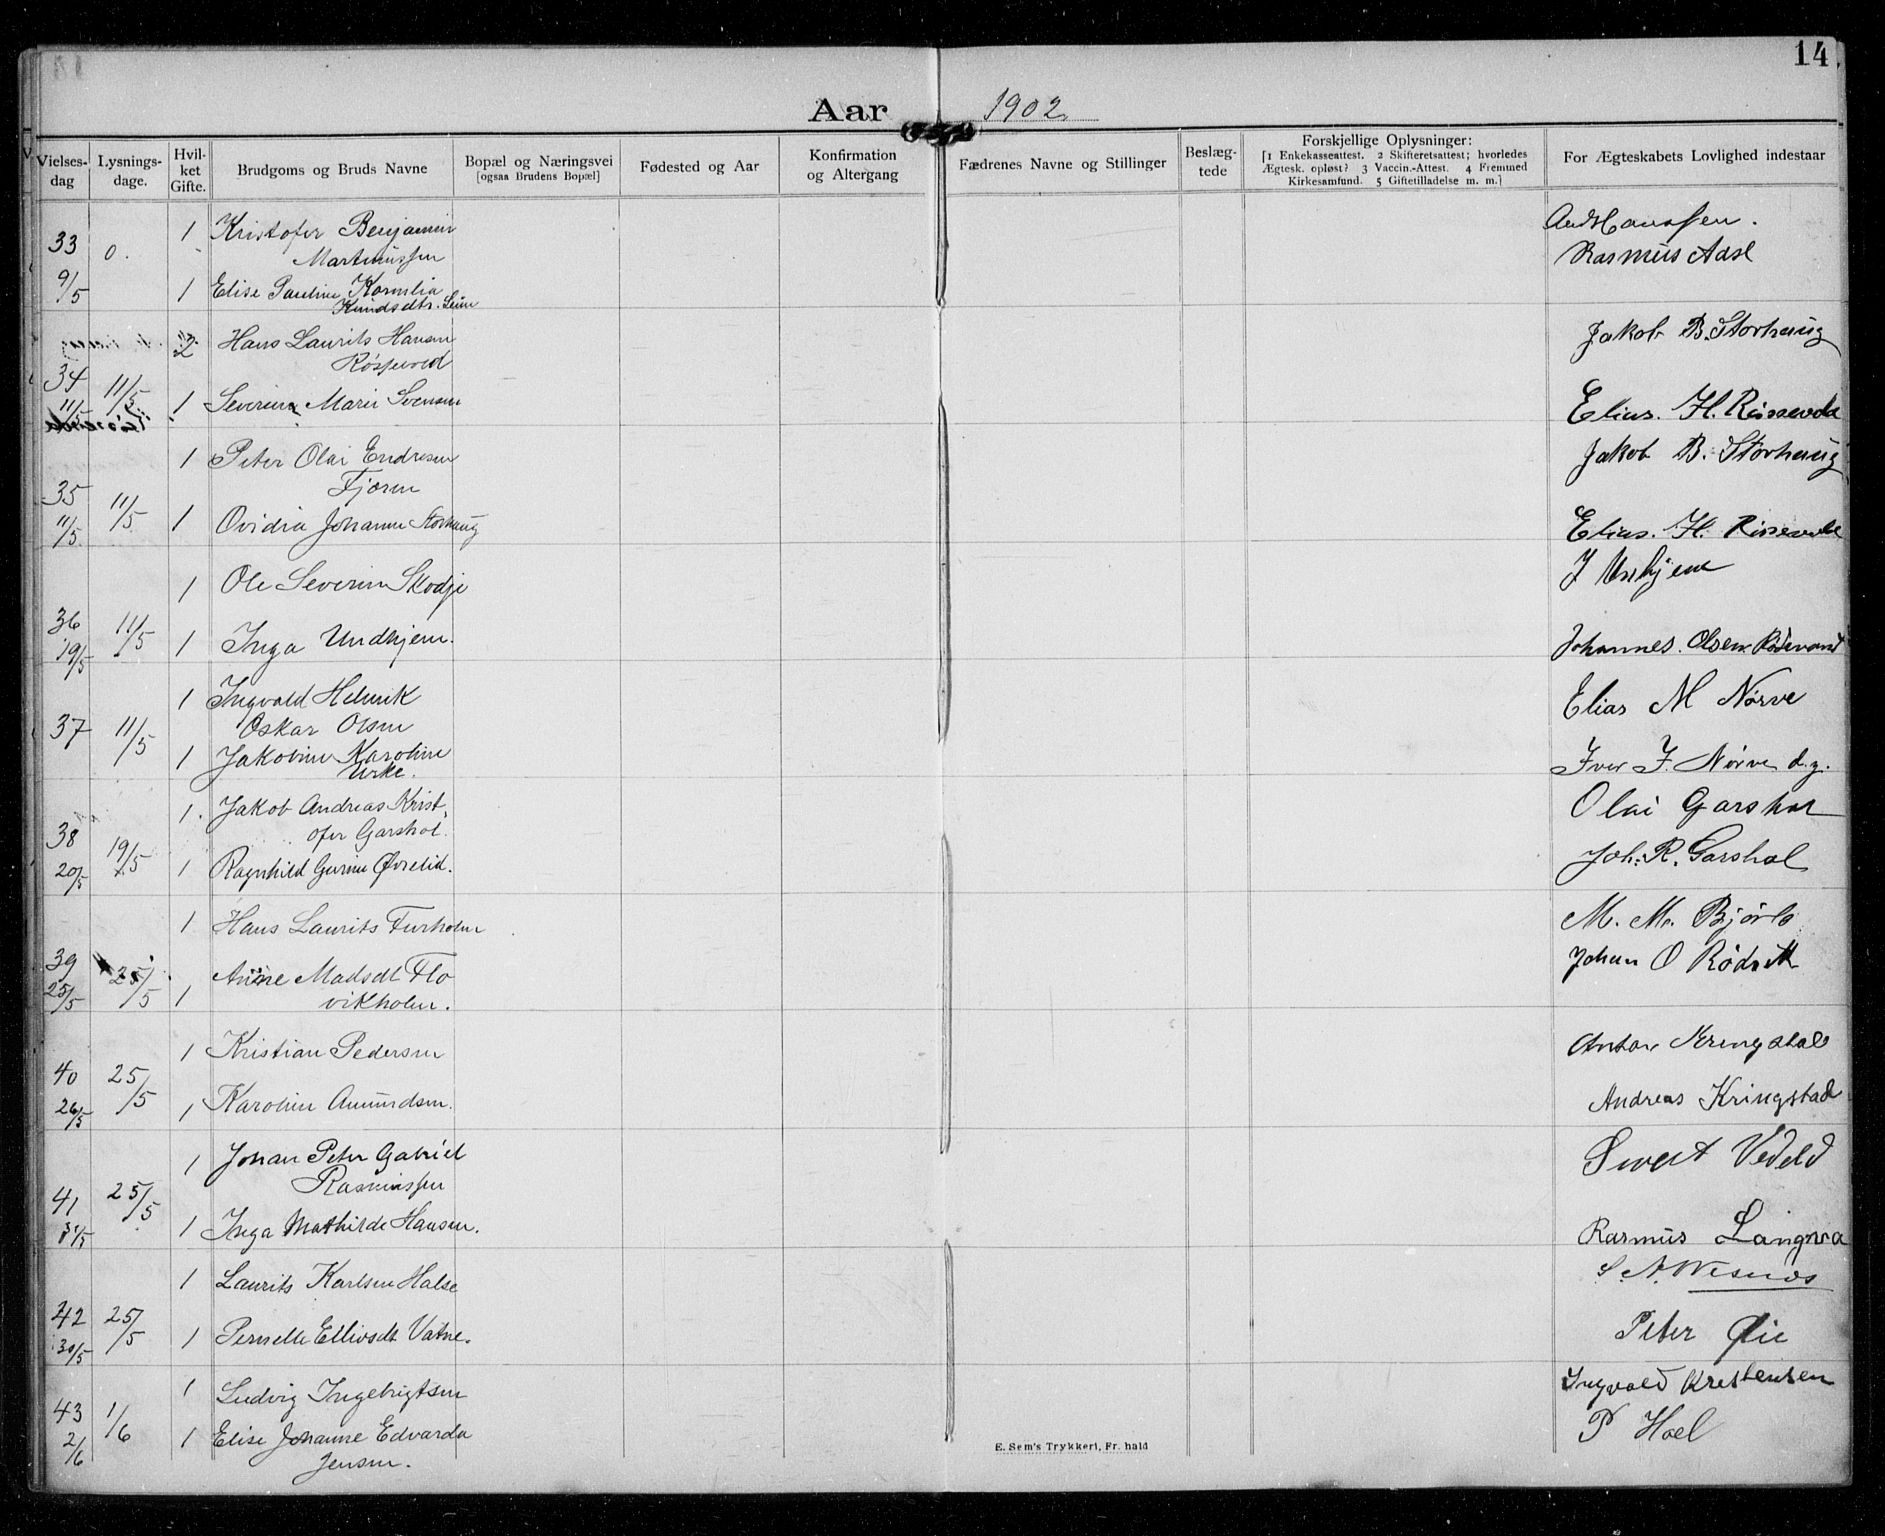 14
Aar 1902
Vielses-dag
Lysnings-dage.
Hvil-ket Gifte.
Brudgoms og Bruds Navne
Bopæl og Næringsvei [ogsaa Brudens Bopæl]
Fødested og Aar
Konfirmation og Altergang
Fædrenes Navne og Stillinger
Beslæg-tede
Forskjellige Oplysninger: [1 Enkekasseattest. 2 Skifteretsattest; hvorledes Ægtesk. opløst? 3 Vaccin.-Attest. 4 Fremmed Kirkesamfund. 5 Giftetilladelse m. m.]
For Ægteskabets Lovlighed indestaar
33 0. 1 Kristofer Benjamin
Martinussen
9/5 1 Elise Pauline Kornelia
Knudsdtr. Leine
And Hanssen.
Rasmus Adse
2 Hans Laurits Hansen
Røssevold
34 11/5
11/5 1 Severine Marie Svensen
Jakob B. Storhaug
Elias. H. Røssevold
1 Peter Olai Endresen
Fjøren
35 11/5
11/5 1 Ovidia Johanne Storhaug
Jakob B. Storhaug
Elias. H. Røssevold
1 Ole Severin Skodje
36 11/5
19/5 1 Inga Undhjem.
J Unhjem
Johannes. Olsen. Rødevand
1 Ingvald Henrik
Oskar Olsen
37 11/5
1 Jakobine Karoline
Urke.
Elias M Nørve
Iver J. Nørve d.y.
1. Jakob Andreas Krist-
ofer Garshol.
38 19/5
20/5 1 Ragnhild Gurine Øvrelid.
Olai Garshol
Joh. R. Garshol
1 Hans Laurits Furholm
39 25/5
25/5 1 Anne Madsdt Flo
vikholm.
M. M. Bjørlo
Johan O Rødseth
1 Kristian Pedersen
40 25/5
26/5 1 Karoline Amundsen.
Anton Kringstad
Andreas Kringstad
1 Johan Peter Gabriel
Rasmussen
41 25/5
31/5 1 Inga Mathilde Hansen.
Sivert Vedeld
Rasmus Langva
1 Laurits Karlsen Halse
42 25/5
30/5 1 Pernelle Ellivsdt Vatne.
Peter Øie
1 Ludvig Ingebrigtsen
43 1/6
2/6 1 Elise Johanne Edvarda
Jensen.
Ingvald Kristensen
P Hoel
E. Sem's Trykkeri, Fr. hald